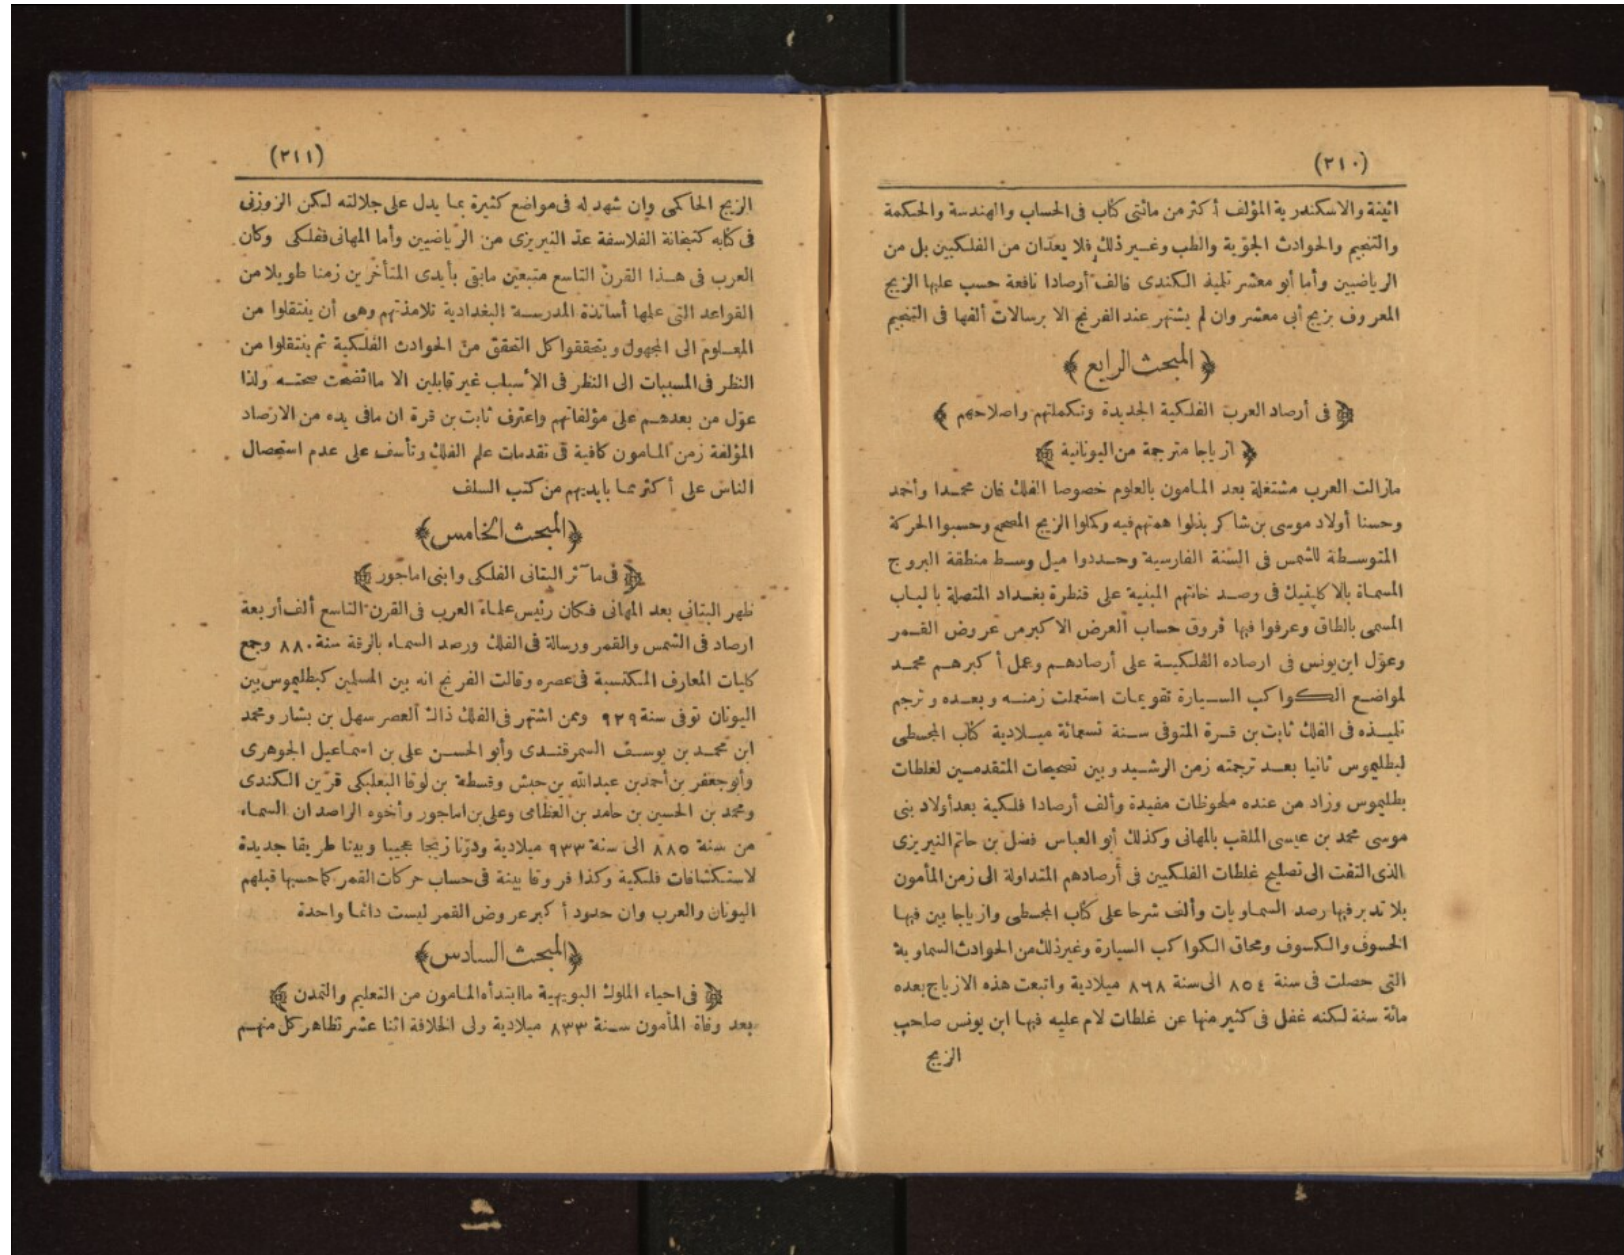 (٢١٠)
اثينة والاسكندرية المؤلف أكثر من مائتى كتاب فى الحساب والهندسة والحكمة
والتنجيم والحوادث الجوّية والطب وغير ذلك فلا يعدّان من الفلكيين بل من
الرياضيين وأما أبو معشر تلميذ الكندى فالف أرصادا نافعة حسب عليها الزيج
المعروف بزيج أبى معشر وان لم يشتهر عند الفرنج الا برسالات ألفها فى التنجيم
﴿المبحث الرابع﴾
﴿ فى أرصاد العرب الفلكية الجديدة وتكملتهم واصلاحهم ﴾
﴿ ازياجا مترجمة من اليونانية ﴾
مازالت العرب مشتغلة بعد المامون بالعلوم خصوصا الفلك فان محمدا وأحمد
وحسنا أولاد موسى بن شاكر بذلوا همتهم فيه وكملوا الزيج المصحح وحسبوا الحركة
المتوسطة للشمس فى السنة الفارسية وحددوا ميل وسط منطقة البروج
المسماة بالاكليتيك فى رصد خانتهم المبنية على قنطرة بغداد المتصلة بالباب
المسمى بالطاق وعرفوا فيها فروق حساب العرض الاكبر من عروض القمر
وعوّل ابن يونس فى ارصاده الفلكية على أرصادهم وعمل أكبرهم محمد
لمواضع الكواكب السيارة تقويمات استعملت زمنه وبعده وترجم
تلميذه فى الفلك ثابت بن قرة المتوفى سنة تسعمائة ميلادية كتاب المجسطى
لبطليموس ثانيا بعد ترجمته زمن الرشيد وبين تصحيحات المتقدمين لغلطات
بطليموس وزاد من عنده ملحوظات مفيدة وألف أرصادا فلكية بعد أولاد بنى
موسى محمد بن عيسى الملقب بالمهانى وكذلك أبو العباس فضل بن حاتم النيريزى
الذى التفت الى تصليح غلطات الفلكيين فى أرصادهم المتداولة الى زمن المأمون
بلا تدبر فيها رصد السماويات وألف شرحا على كتاب المجسطى وازياجا بين فيها
الخسوف والكسوف ومحاق الكواكب السيارة وغير ذلك من الحوادث السماوية
التى حصلت فى سنة ٨٥٤ الى سنة ٨٦٨ ميلادية واتبعت هذه الازياج بعده
مائة سنة لكنه غفل فى كثير منها عن غلطات لام عليه فيها ابن يونس صاحب
الزيج
(٢١١)
الزيج الحاكمى وان شهد له فى مواضع كثيرة بما يدل على جلالته لكن الزوزنى
فى كتابه كتبخانة الفلاسفة عدّ النيريزى من الرياضيين وأما المهانى ففلكى وكان
العرب فى هذا القرن التاسع متبعين مابقى بأيدى المتأخرين زمنا طويلا من
القواعد التى علمها أساتذة المدرسة البغدادية تلامذتهم وهى أن ينتقلوا من
المعلوم الى المجهول ويتحققوا كل التحقق من الحوادث الفلكية ثم ينتقلوا من
النظر فى المسببات الى النظر فى الأسباب غير قابلين الا مااتضحت صحته ولذا
عوّل من بعدهم على مؤلفاتهم واعترف ثابت بن قرة ان مافى يده من الارصاد
المؤلفة زمن المامون كافية فى تقدمات علم الفلك وتأسف على عدم استحصال
الناس على أكثر مما بايديهم من كتب السلف
﴿المبحث الخامس﴾
﴿ فى مآثر البتانى الفلكى وابنى اماجور ﴾
ظهر البتاني بعد المهانى فكان رئيس علماء العرب فى القرن التاسع ألف أربعة
ارصاد فى الشمس والقمر ورسالة فى الفلك ورصد السماء بالرقة سنة ٨٨٠ وجمع
كليات المعارف المكتسبة فى عصره وقالت الفرنج انه بين المسلمين كبطليموس بين
اليونان توفى سنة ٩٢٩ وممن اشتهر فى الفلك ذاك العصر سهل بن بشار ومحمد
ابن محمد بن يوسف السمرقندى وأبو الحسن على بن اسماعيل الجوهرى
وأبو جعفر بن أحمد بن عبدالله بن حبش وقسطة بن لوقا البعلبكى قرين الكندى
ومحمد بن الحسين بن حامد بن العظامى وعلى بن اماجور وأخوه الراصدان السماء
من سنة ٨٨٥ الى سنة ٩٣٣ ميلادية ودوّنا زيجا عجيبا وبينا طريقا جديدة
لاستكشافات فلكية وكذا فروقا بينة فى حساب حركات القمر كما حسبها قبلهم
اليونان والعرب وان حدود أكبر عروض القمر ليست دائما واحدة
﴿المبحث السادس﴾
﴿ فى احياء الملوك البويهية ماابتدأه المامون من التعليم والتمدن ﴾
بعد وفاة المأمون سنة ٨٣٣ ميلادية ولى الخلافة اثنا عشر تظاهر كل منهم